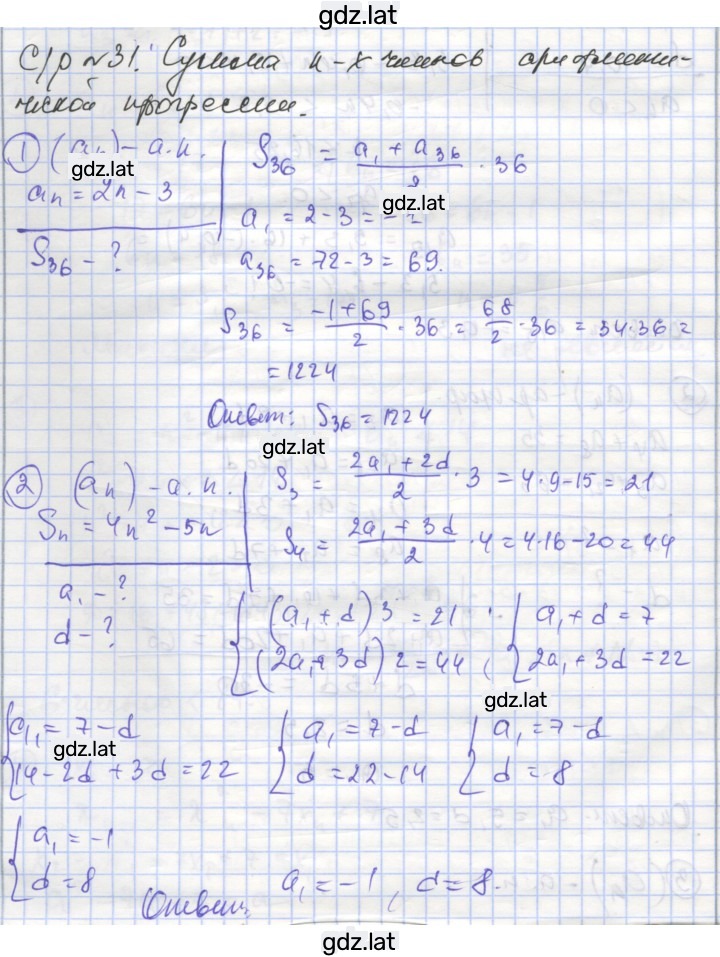 gdz.lat
С/р №31. Сумма n-х членов арифмети-
ческой прогрессии.
① (aₙ) – а.п.
gdz.lat
aₙ = 2n – 3
S₃₆ – ?
S₃₆ = (a₁ + a₃₆)/2 · 36
gdz.lat
a₁ = 2 – 3 = –1
a₃₆ = 72 – 3 = 69.
S₃₆ = (–1 + 69)/2 · 36 = 68/2 · 36 = 34·36 =
= 1224
Ответ: S₃₆ = 1224
gdz.lat
② (aₙ) – а.п.
Sₙ = 4n² – 5n
a₁ – ?
d – ?
S₃ = (2a₁ + 2d)/2 · 3 = 4·9 – 15 = 21
S₄ = (2a₁ + 3d)/2 · 4 = 4·16 – 20 = 44
{ (a₁ + d) 3 = 21 { a₁ + d = 7
(2a₁ + 3d) 2 = 44 ( 2a₁ + 3d = 22
gdz.lat
{ a₁ = 7 – d { a₁ = 7 – d { a₁ = 7 – d
gdz.lat
14 – 2d + 3d = 22 d = 22 – 14 d = 8
{ a₁ = –1
d = 8
Ответ: a₁ = –1, d = 8.
gdz.lat